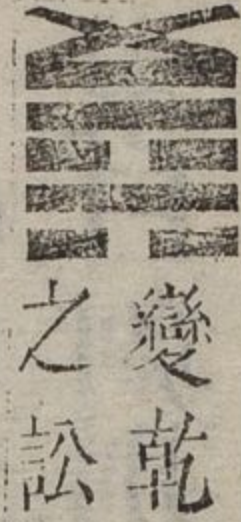 變乾
之訟